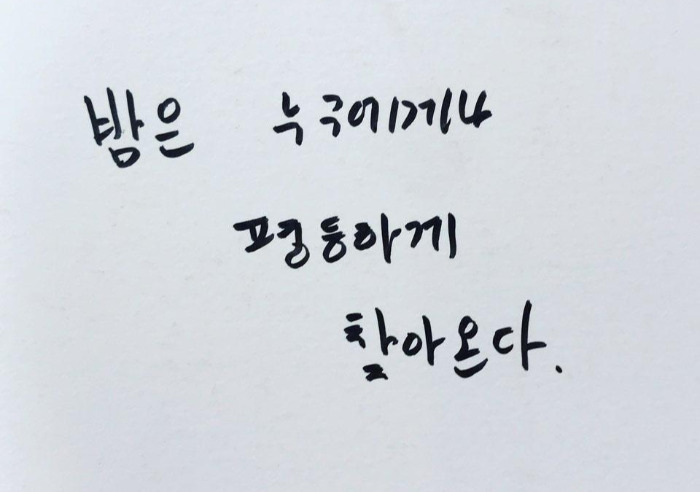 밤은 누구에게나
평등하게
찾아온다.